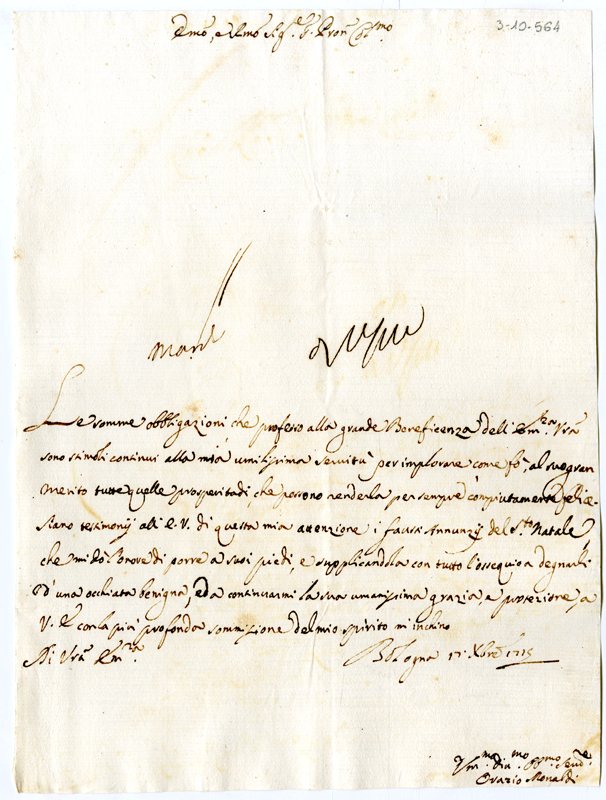 3-10-564
Emo, e Rmo Sigr. Pron Colmo
Le somme obbligazioni, che professo alla grande Beneficenza dell'Em.za Vrã
sono stimoli continui alla mia umilissima servitù per implorare come fò, al suo gran
merito tutte quelle prosperitadi, che possono renderla per sempre compiutamente felice
Siano testimonij all'E.V. di questa mia attenzione i fausti Annunzij del S.to Natale,
che mi dò l'onore di porre a suoi piedi, e supplicandola con tutto l'ossequio a degnarli
d'una occhiata benigna, ed a continuarmi la sua umanissima grazia, e protezione, a
V. E. con la più profonda sommissione del mio spirito m'inchino
Di Vrã Em.za
Bologna 17 Xbre 1715
Um.mo Div.mo Serv.e
Orazio Monaldi